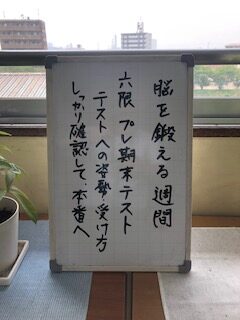 脳を鍛える週間
六限 プレ期末テスト
テストへの姿勢・受け方
しっかり確認して 本番へ